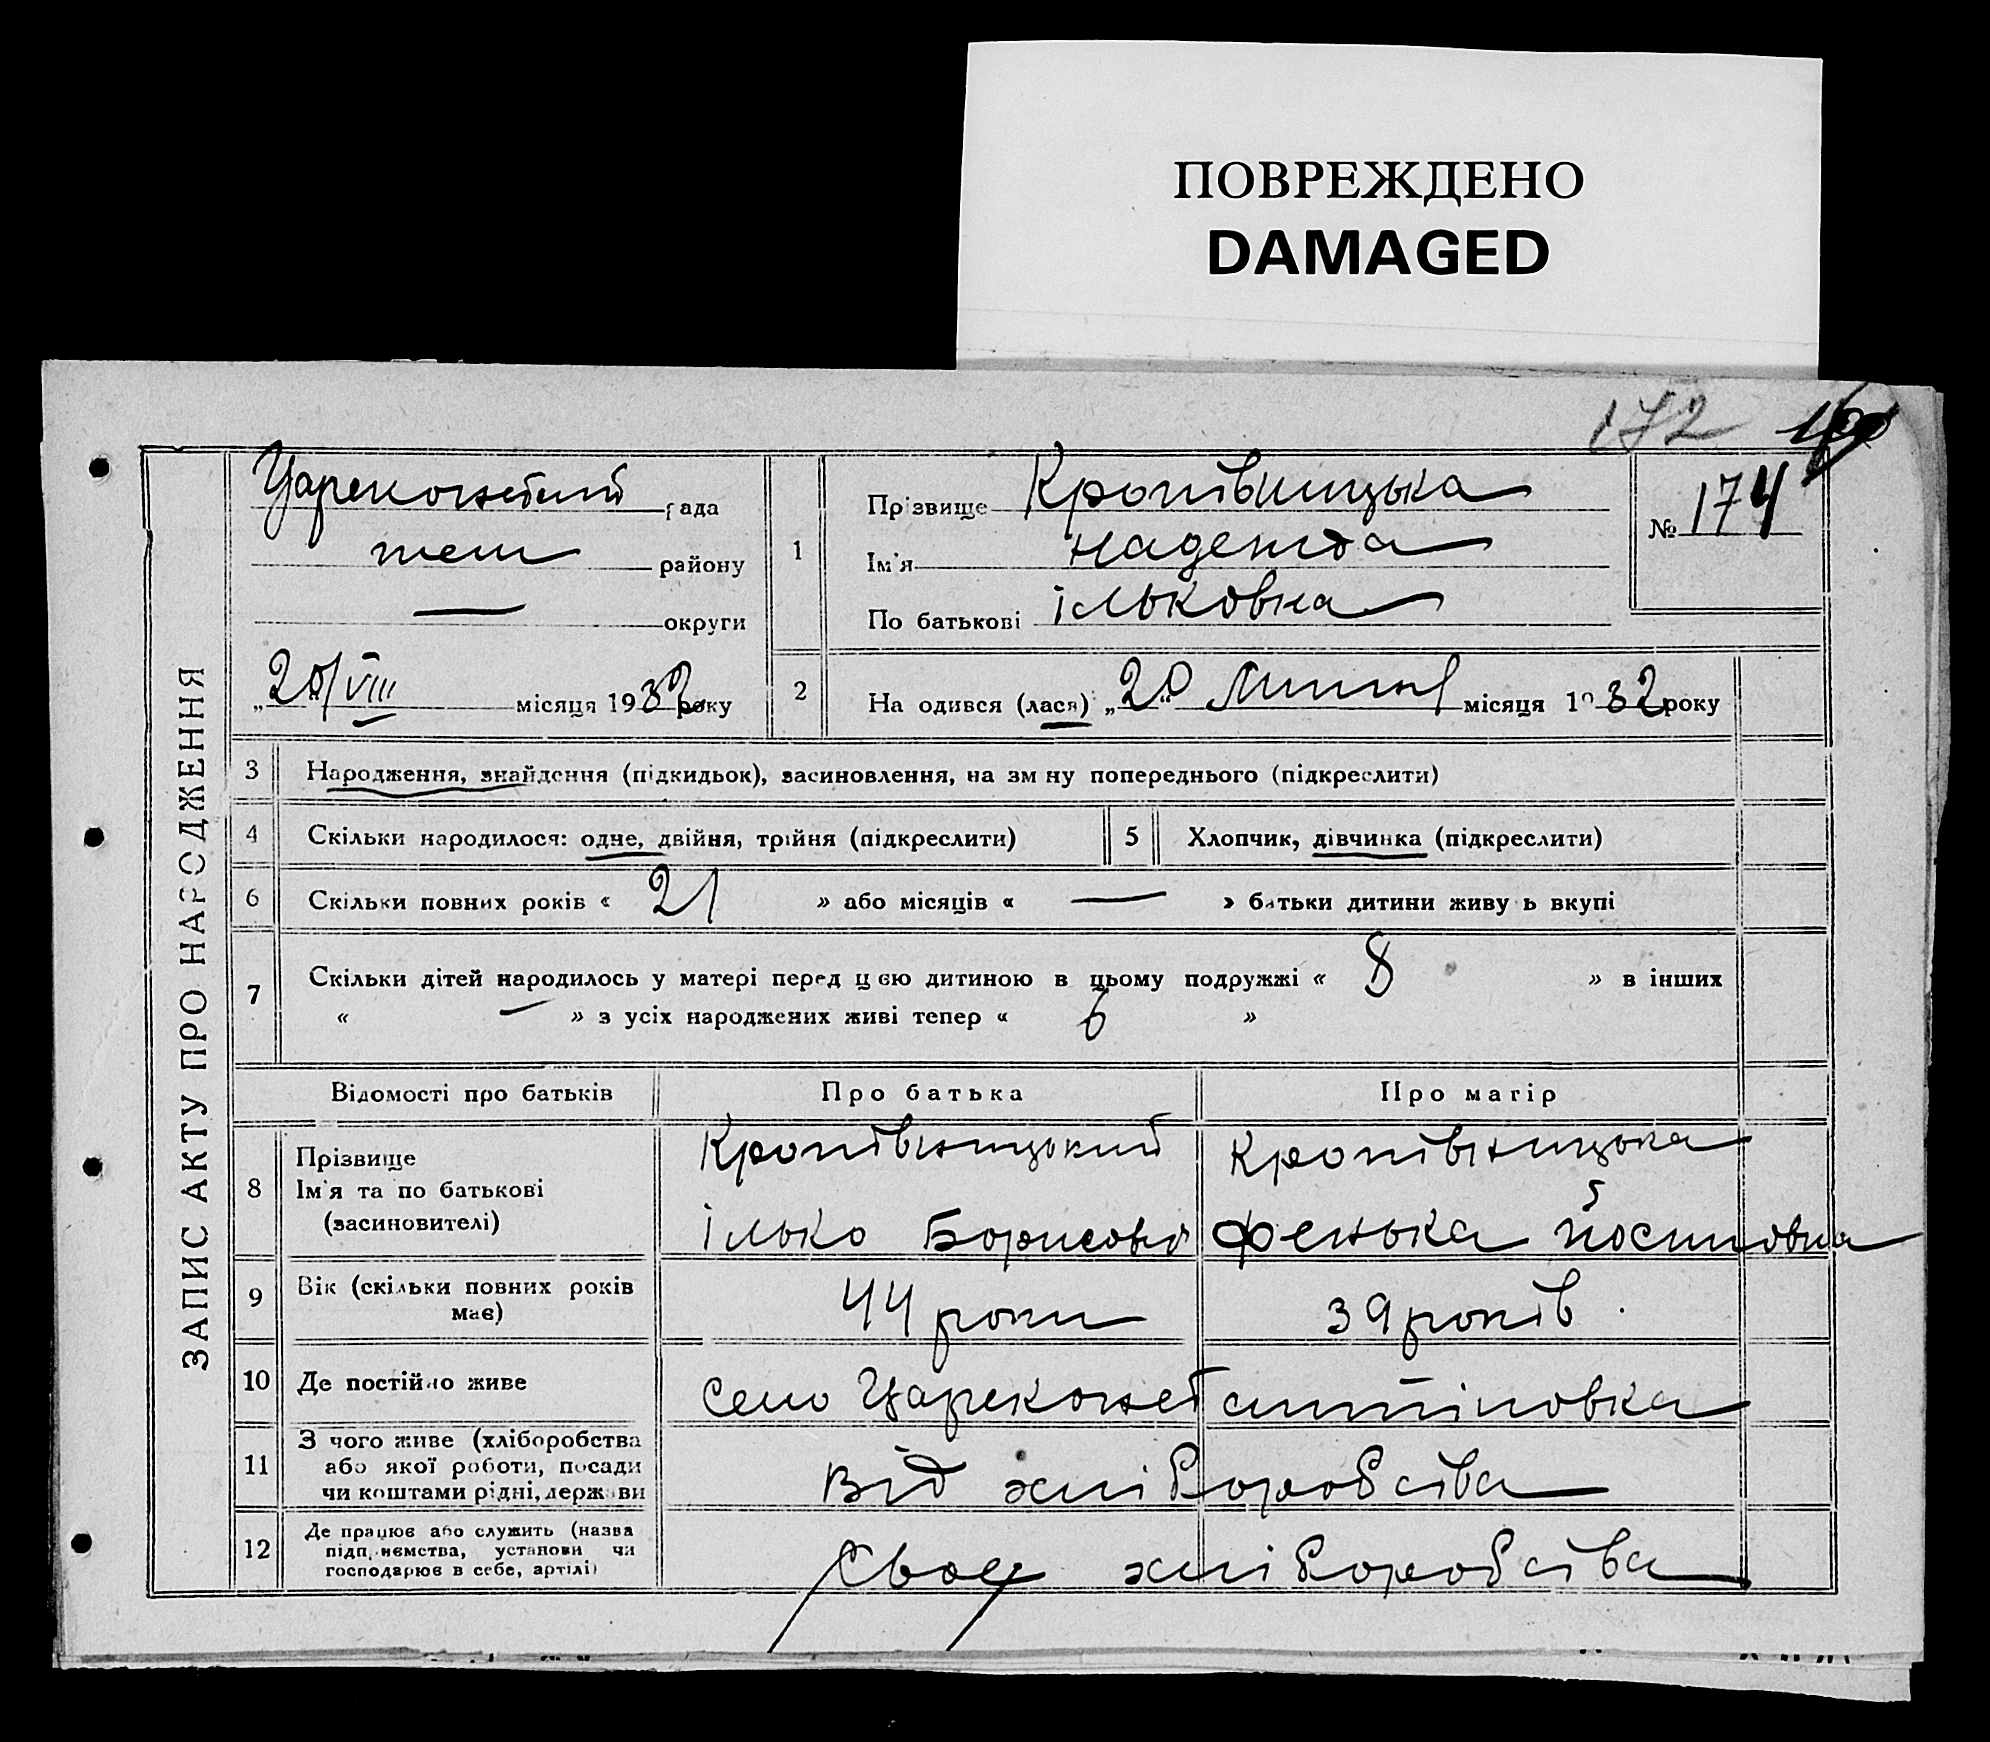 ПОВРЕЖДЕНО
DAMAGED
172
ЗАПИС АКТУ ПРО НАРОДЖЕННЯ
рада
району
— округи
„20“/VIII місяця 1932 року
1
Прізвище Кропівницька
Ім'я Надежда
По батькові ільковна
№ 174
2 На одився (лася) „20“ Липня місяця 1932 року
3 Народження, знайдення (підкидьок), засиновлення, на зм ну попереднього (підкреслити)
4 Скільки народилося: одне, двійня, трійня (підкреслити)
5 Хлопчик, дівчинка (підкреслити)
6 Скільки повних років « 21 » або місяців « — » батьки дитини живу ь вкупі
7 Скільки дітей народилось у матері перед цією дитиною в цьому подружжі « 8 » в інших
« — » з усіх народжених живі тепер « 6 »
Відомості про батьків Про батька Про матір
8 Прізвище
Ім'я та по батькові
(засиновителі)
Кропівницький
ілько Борисов
Кропівницька
Фенька Йосиповна
9 Вік (скільки повних років
має)
44 роки 39 років
10 Де постійно живе село
11 З чого живе (хліборобства
або якої роботи, посади
чи коштами рідні, держави
Від хліборобства
12 Де працює або служить (назва
підприємства, установи чи
господарює в себе, артілі)
Своє хліборобства